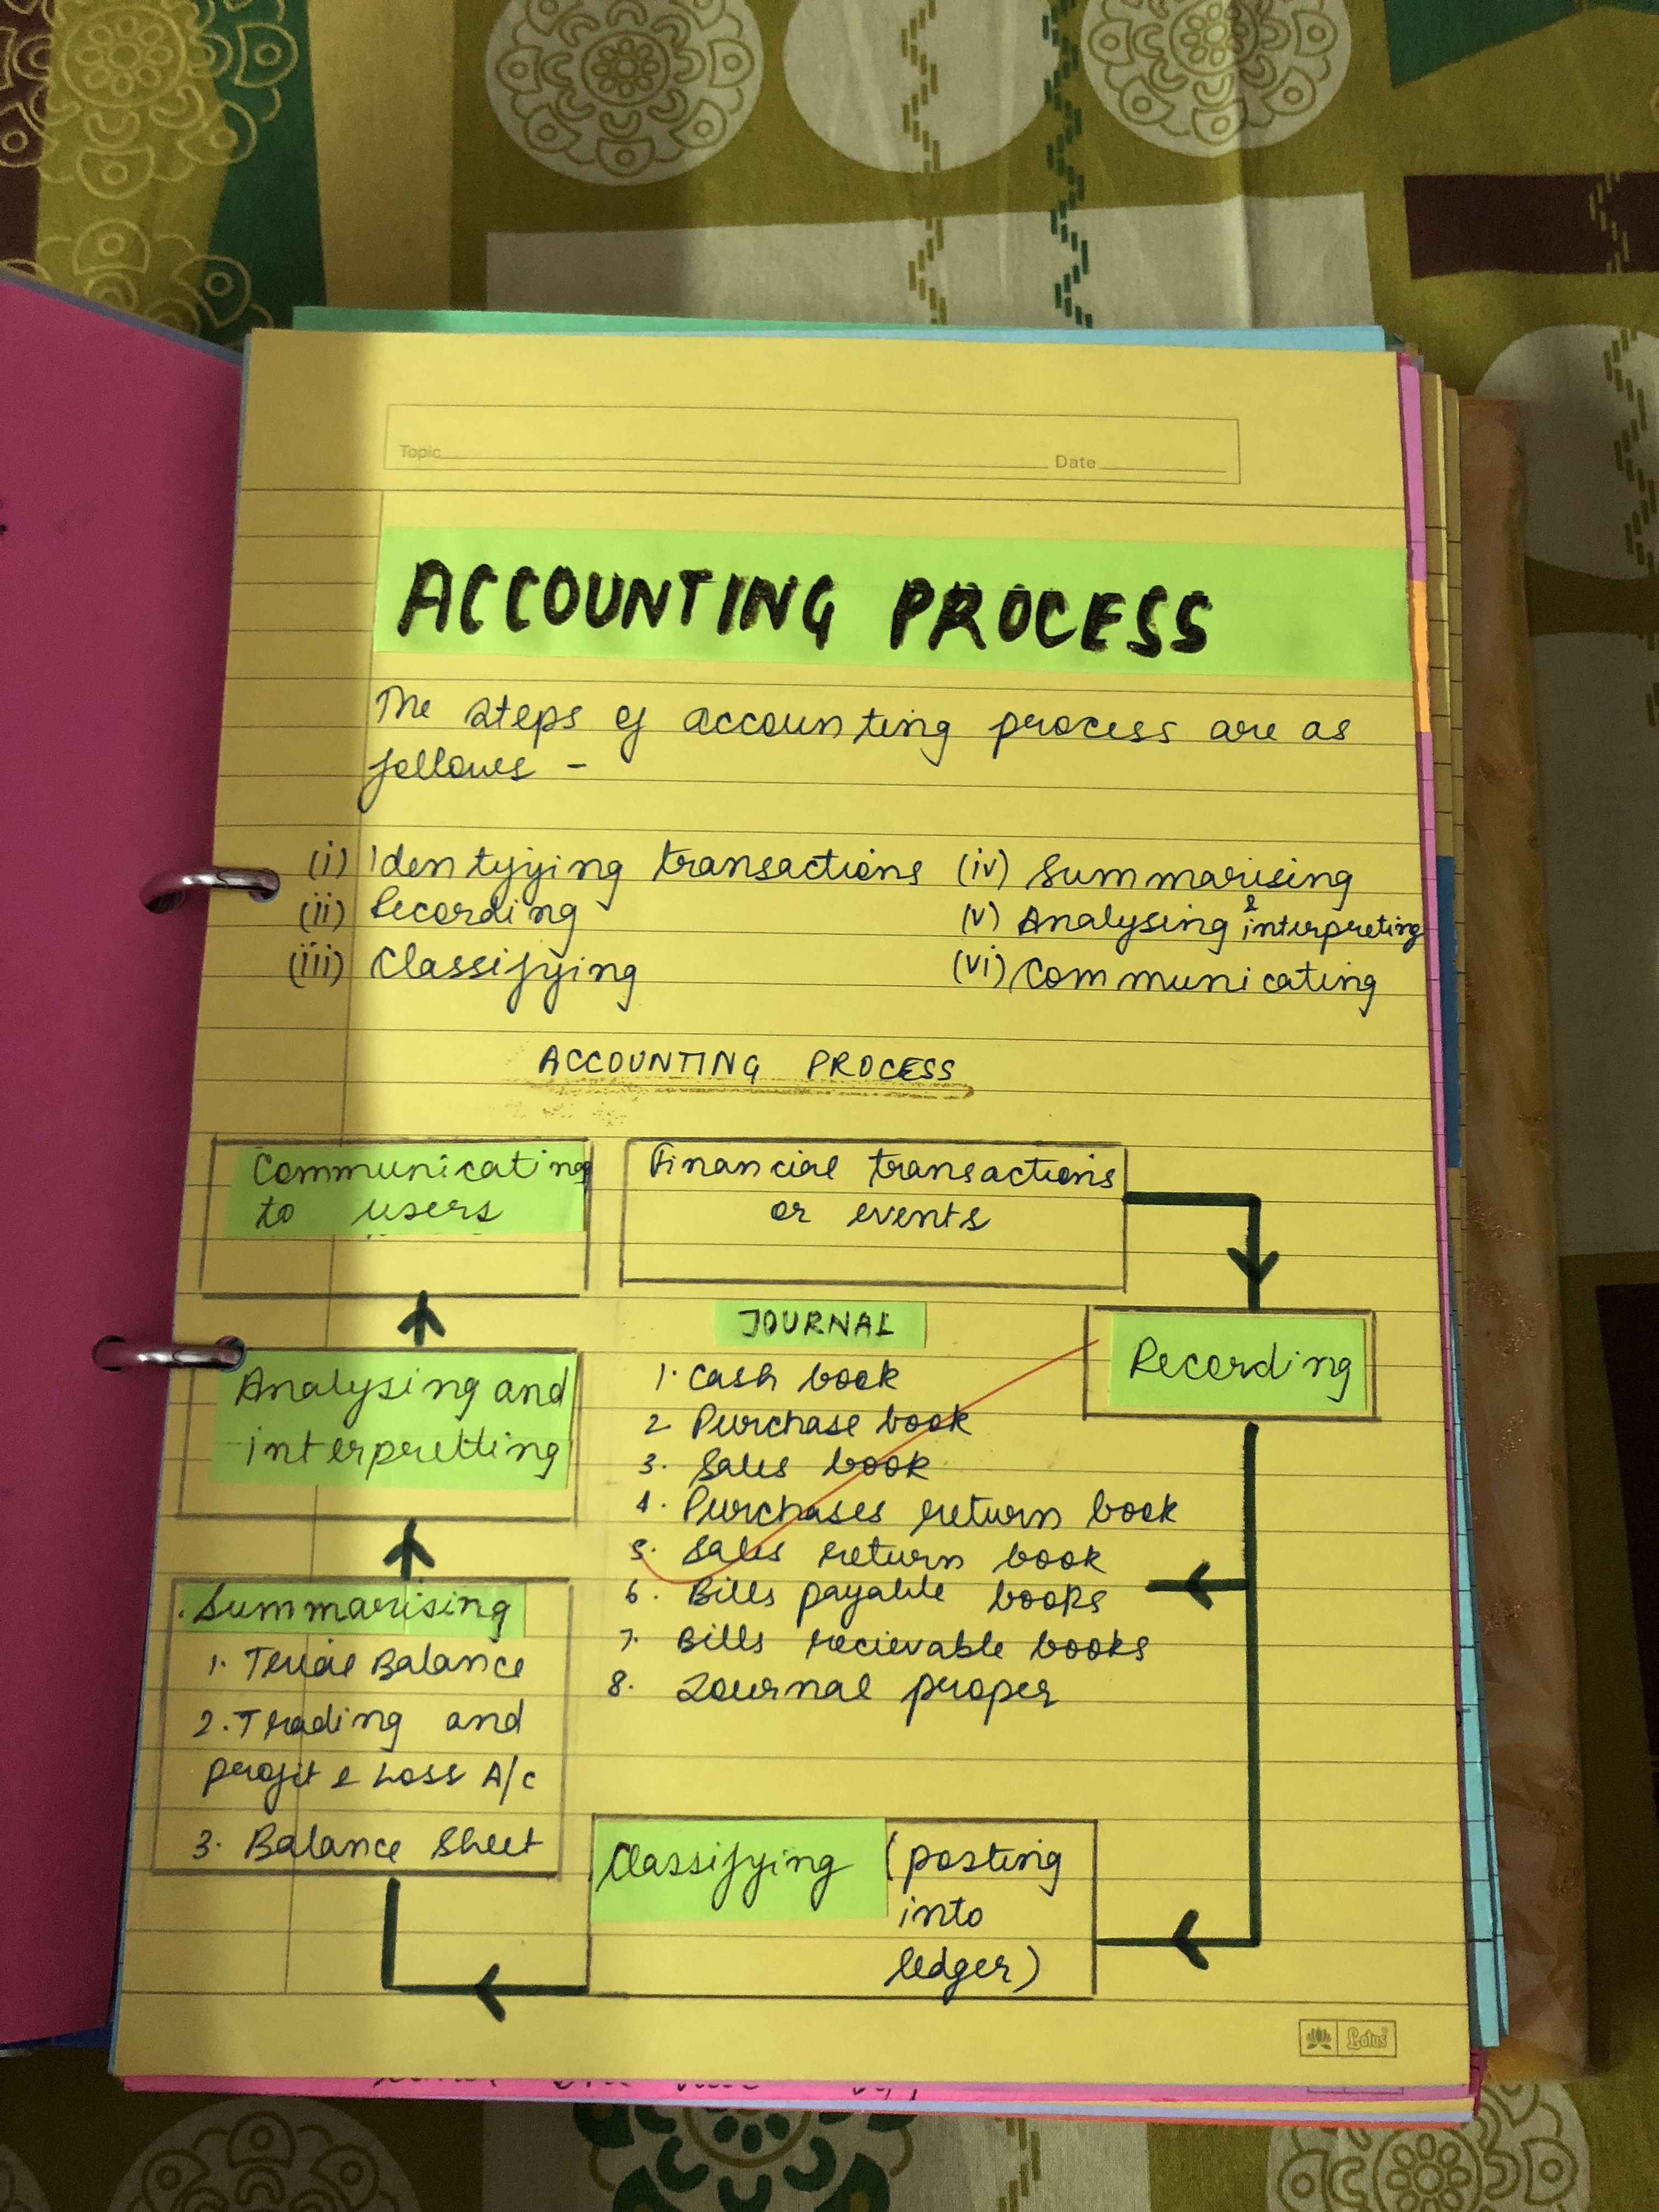 Topic Date
ACCOUNTING PROCESS
The steps of accounting process are as
follows -
(i) Identifying transactions (iv) Summarising
(ii) Recording (v) Analysing & interpreting
(iii) Classifying (vi) Communicating
ACCOUNTING PROCESS
Communicating
to users
Financial transactions
or events
JOURNAL
1. Cash book
2 Purchase book
3. Sales book
4. Purchases return book
5. Sales return book
6. Bills payable books
7. Bills recievable books
8. Journal proper
Recording
Analysing and
interpretting
Summarising
1. Trial Balance
2. Trading and
profit & Loss A/c
3. Balance Sheet
Classifying (posting
into
ledger)
Lotus